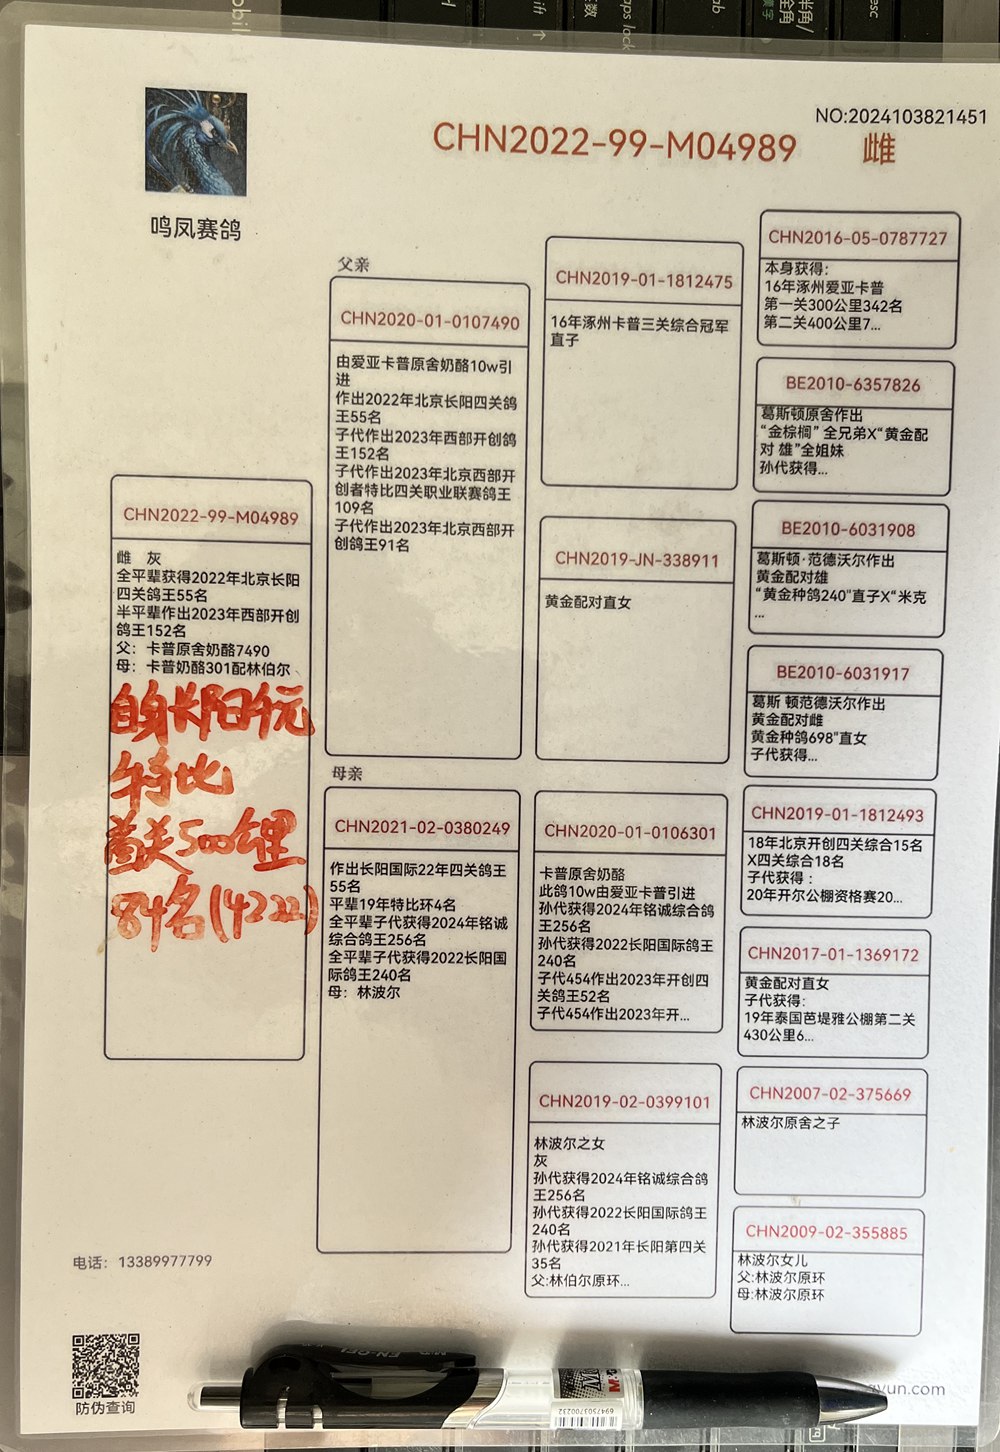 NO:2024103821451
CHN2022-99-M04989 雌
鸣凤赛鸽
CHN2022-99-M04989
雌 灰
全平辈获得2022年北京长阳
四关鸽王55名
半平辈作出2023年西部开创
鸽王152名
父：卡普原舍奶酪7490
母：卡普奶酪301配林伯尔
自身长阳伉
特比
首关500公里
84名(1422)
父亲
CHN2020-01-0107490
由爱亚卡普原舍奶酪10w引
进
作出2022年北京长阳四关鸽
王55名
子代作出2023年西部开创鸽
王152名
子代作出2023年北京西部开
创者特比四关职业联赛鸽王
109名
子代作出2023年北京西部开
创鸽王91名
母亲
CHN2021-02-0380249
作出长阳国际22年四关鸽王
55名
平辈19年特比环4名
全平辈子代获得2024年铭诚
综合鸽王256名
全平辈子代获得2022长阳国
际鸽王240名
母：林波尔
CHN2019-01-1812475
16年涿州卡普三关综合冠军
直子
CHN2019-JN-338911
黄金配对直女
CHN2020-01-0106301
卡普原舍奶酪
此鸽10w由爱亚卡普引进
孙代获得2024年铭诚综合鸽
王256名
孙代获得2022长阳国际鸽王
240名
子代454作出2023年开创四
关鸽王52名
子代454作出2023年开...
CHN2019-02-0399101
林波尔之女
灰
孙代获得2024年铭诚综合鸽
王256名
孙代获得2022长阳国际鸽王
240名
孙代获得2021年长阳第四关
35名
父:林伯尔原环...
CHN2016-05-0787727
本身获得:
16年涿州爱亚卡普
第一关300公里342名
第二关400公里7...
BE2010-6357826
葛斯顿原舍作出
“金棕榈” 全兄弟X“黄金配
对 雄”全姐妹
孙代获得...
BE2010-6031908
葛斯顿·范德沃尔作出
黄金配对雄
“黄金种鸽240"直子X“米克
...
BE2010-6031917
葛斯 顿范德沃尔作出
黄金配对雌
黄金种鸽698"直女
子代获得...
CHN2019-01-1812493
18年北京开创四关综合15名
X四关综合18名
子代获得：
20年开尔公棚资格赛20...
CHN2017-01-1369172
黄金配对直女
子代获得:
19年泰国芭堤雅公棚第二关
430公里6...
CHN2007-02-375669
林波尔原舍之子
CHN2009-02-355885
林波尔女儿
父:林波尔原环
母:林波尔原环
电话：13389977799
防伪查询
yun.com
M&G
6947503700232